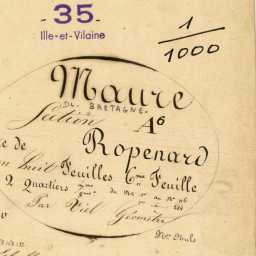 - 35 -
Ille-et-Vilaine
1
1000
Maure
DE BRETAGNE
Section A6
de Ropenard
en huit Feuilles 6me Feuille
2 Quartiers
Par Viel Géomètre